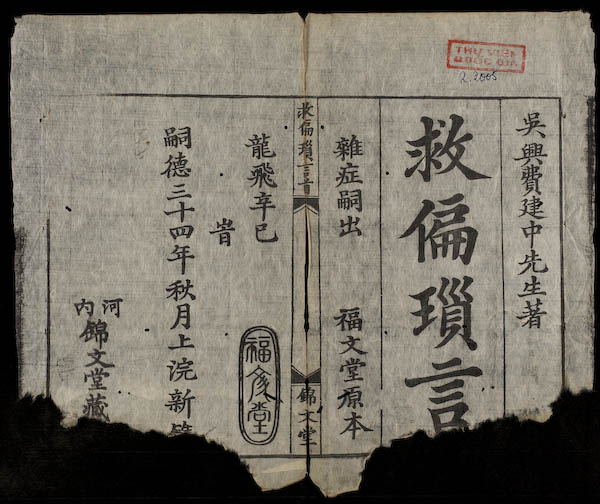 THƯ VIỆN
QUỐC GIA
R.2005
吳興費建中先生著
救偏瑣言
雜症嗣出 福文堂原本
救偏瑣言
錦文堂
龍飛辛巳
旹
嗣德三十四年秋月上浣新
河內
錦文堂藏
福文堂